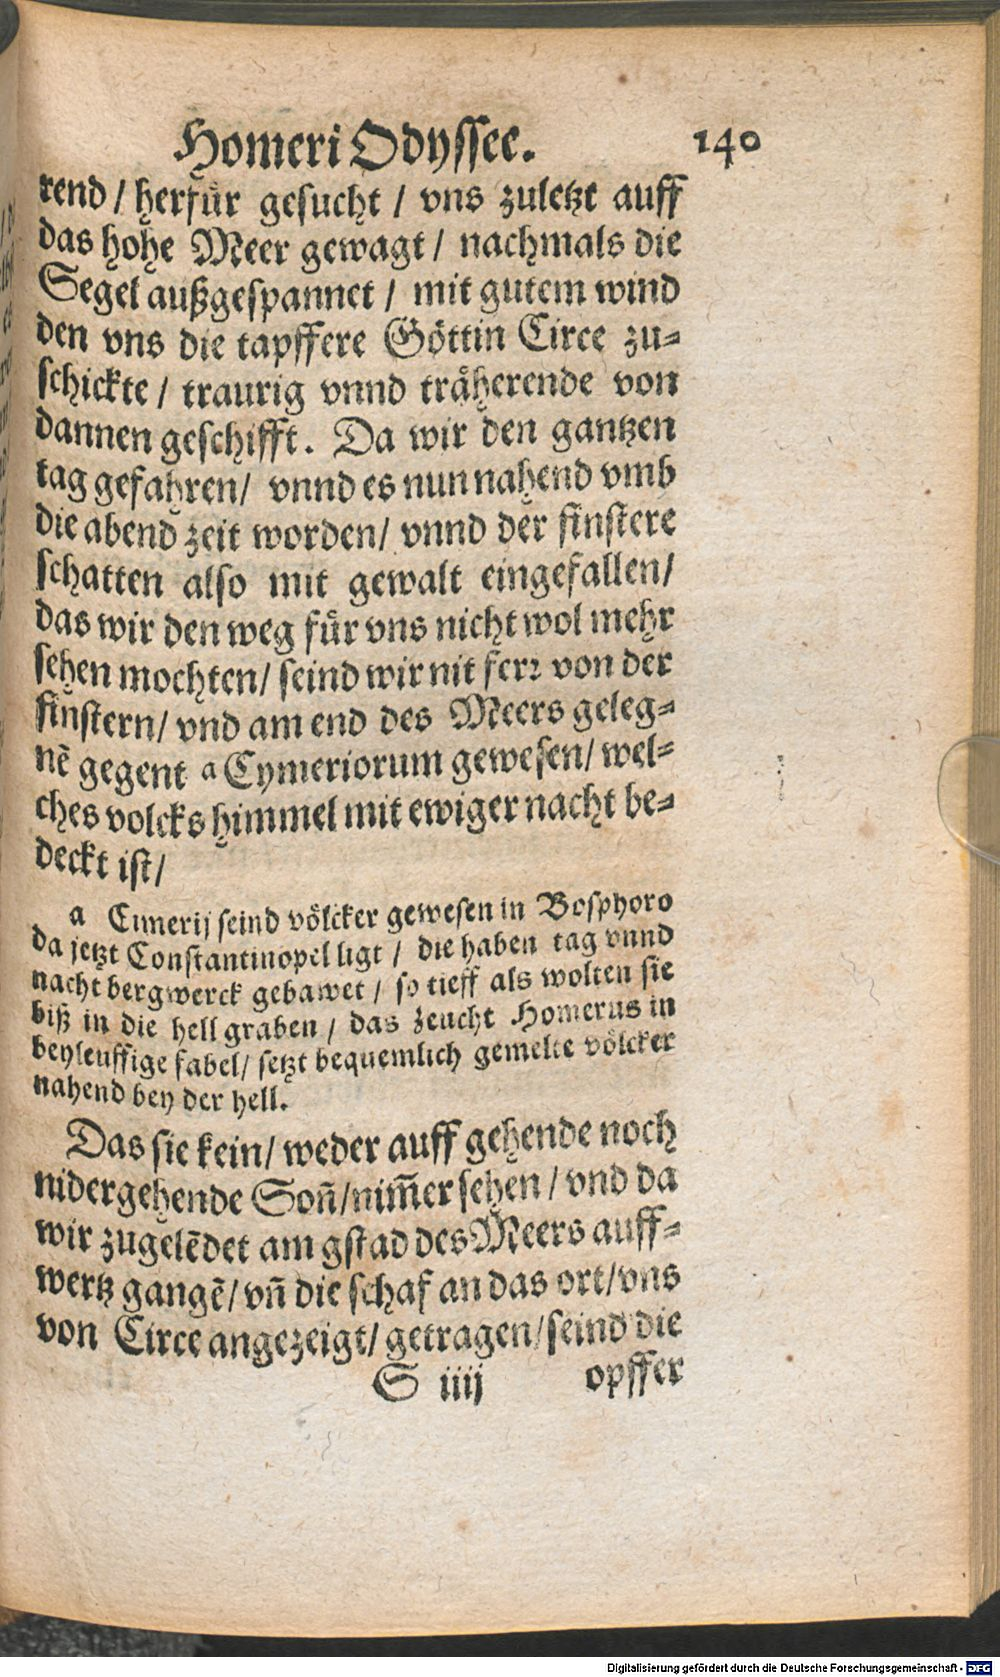 Homeri Odyssee. 140
rend / herfür gesucht / vns zuletzt auff
das hohe Meer gewagt / nachmals die
Segel außgespannet / mit gutem wind
den vns die tapffere Göttin Circe zu-
schickte / traurig vnnd träherende von
dannen geschifft. Da wir den gantzen
tag gefahren / vnnd es nun nahend vmb
die abend zeit worden / vnnd der finstere
schatten also mit gewalt eingefallen /
das wir den weg für vns nicht wol mehr
sehen mochten / seind wir nit ferr von der
finstern / vnd am end des Meers geleg-
nẽ gegent a Cymeriorum gewesen / wel-
ches volcks himmel mit ewiger nacht be-
deckt ist /
a Cimerij seind völcker gewesen in Bosphoro
da jetzt Constantinopel ligt / die haben tag vnnd
nacht bergwerck gebawet / so tieff als wolten sie
biß in die hell graben / das zeucht Homerus in
beyleuffige fabel / setzt bequemlich gemelte völcker
nahend bey der hell.
Das sie kein / weder auff gehende noch
nidergehende Son̄ / nim̄er sehen / vnd da
wir zugelẽdet am gstad des Meers auff-
wertz gangẽ / vn̄ die schaf an das ort / vns
von Circe angezeigt / getragen / seind die
S iiij opffer
Digitalisierung gefördert durch die Deutsche Forschungsgemeinschaft - DFG